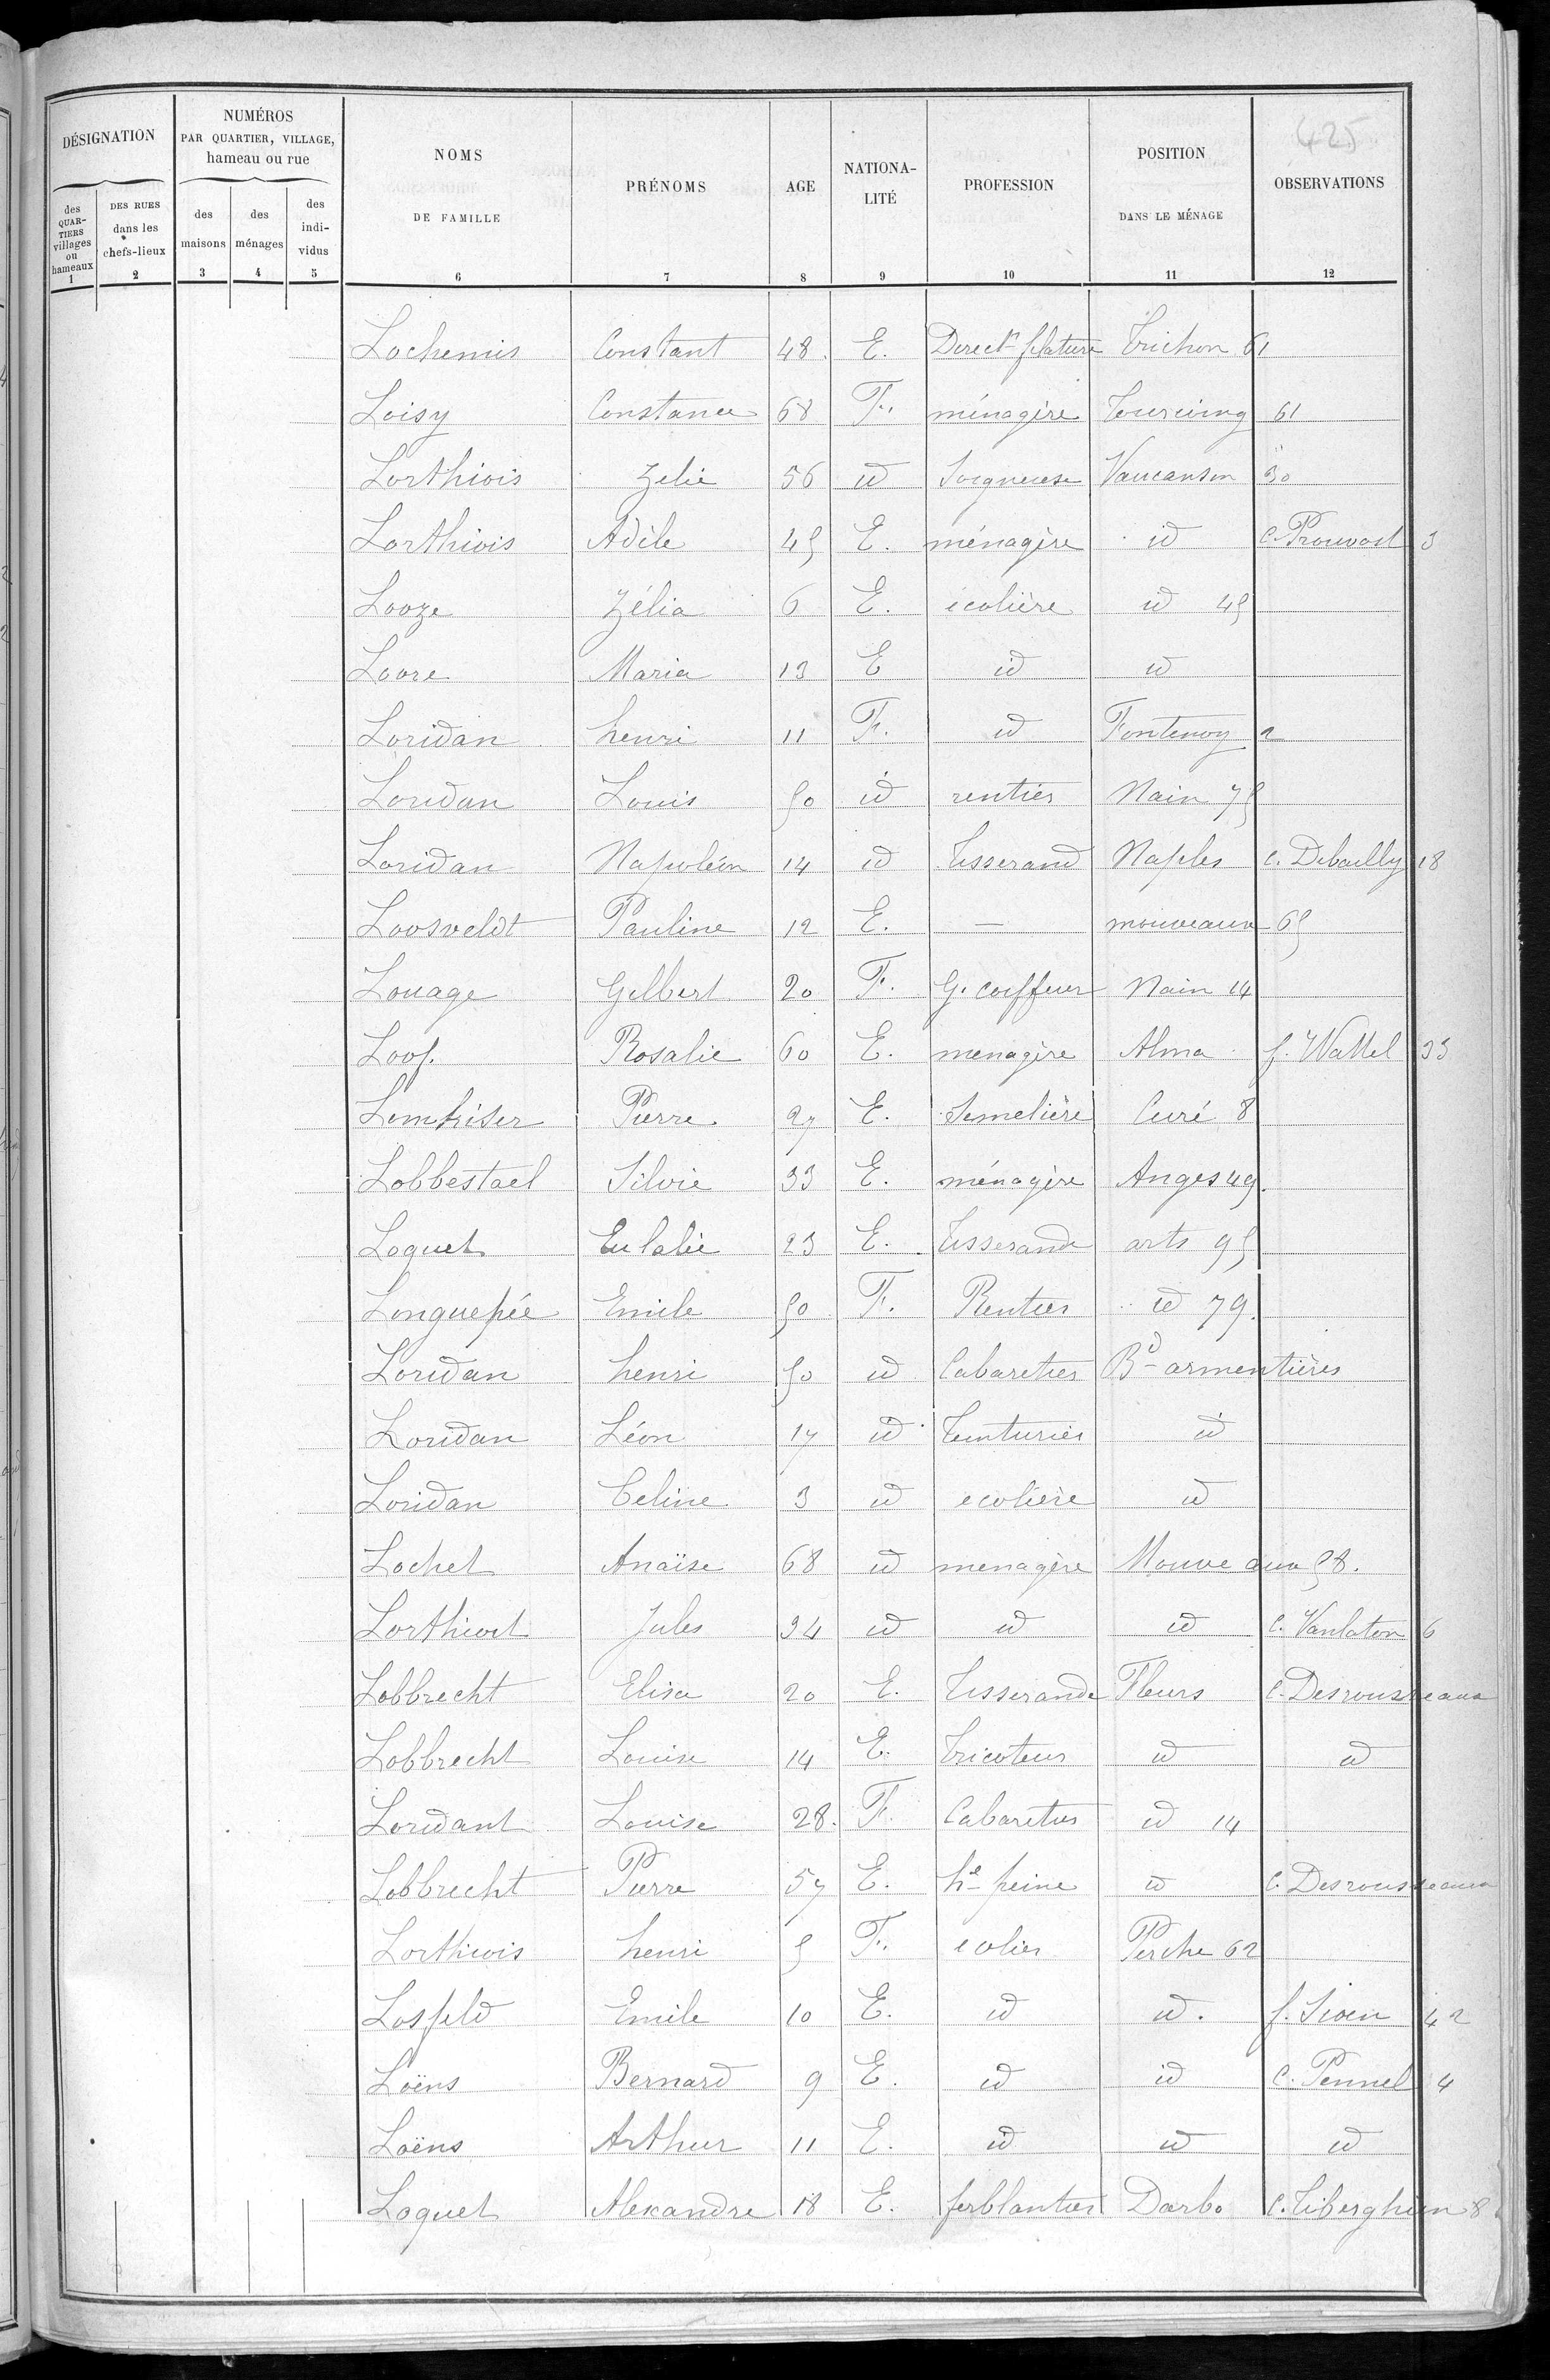 425
DÉSIGNATION
NUMÉROS
PAR QUARTIER, VILLAGE,
hameau ou rue
NOMS
DE FAMILLE
PRÉNOMS
AGE
NATIONA-
LITÉ
PROFESSION
POSITION
DANS LE MÉNAGE
OBSERVATIONS
des QUAR-TIERS villages ou hameaux
DES RUES dans les chefs-lieux
des maisons
des ménages
des indi-vidus
1 2 3 4 5 6 7 8 9 10 11 12
Lochemis Constant 48. E. Direct r filature Trichon 61
Loisy Constance 68 F. ménagère Tourcoing 61
Lorthiois Zelie 56 id Soigneuse Vaucanson 30
Lorthiois Adèle 45 E. ménagère id c. Prouvost 3
Looze Zélia 6 E. écolière id 45
Loore Maria 13 E id id
Loridan henri 11 F. id Fontenoy 2
Loridan Louis 50 id rentier Nain 75
Loridan Napoléon 14 id Tisserand Naples c. Debailly 18
Loosveldt Pauline 12 E. — mouveaux 65
Louage Gilbert 20 F. G. coiffeur Nain 14
Loof. Rosalie 60 E. menagère Alma f. Wattel 33
Pierre 27 E. Semelière Curé 8
Lobbestael Silvie 33 E. ménagère Anges 49.
Loquet Eulalie 23 E. Tisserande arts 95
Longuepée Emile 50 F. Rentier id 79.
Loridan henri 50 id Cabaretier Bd armentières
Loridan Léon 17 id Teinturier id
Loridan Celine 3 id ecolière id
Lochet Anaïse 68 id menagère Mouveaux 58.
Lorthiort Jules 34 id id id C. Vanlaton 6
Lobbrecht Elisa 20 E. Tisserande Fleurs C. Desrousseaux
Lobbrecht Louise 14 E. Tricoteur id id
Loridant Louise 28. F. Cabaretier id 14
Lobbrecht Pierre 57 E. he peine id C. Desrousseaux
Lorthiois henri 5 F. ecolier Perche 62
Losfeld Emile 10 E. id id. f. Sioen 42
Loëns Bernard 9 E. id id C. Pennel 4
Loëns Arthur 11 E. id id id
Loquet Alexandre 18 E. ferblantier Darbo C. Tiberghien 8